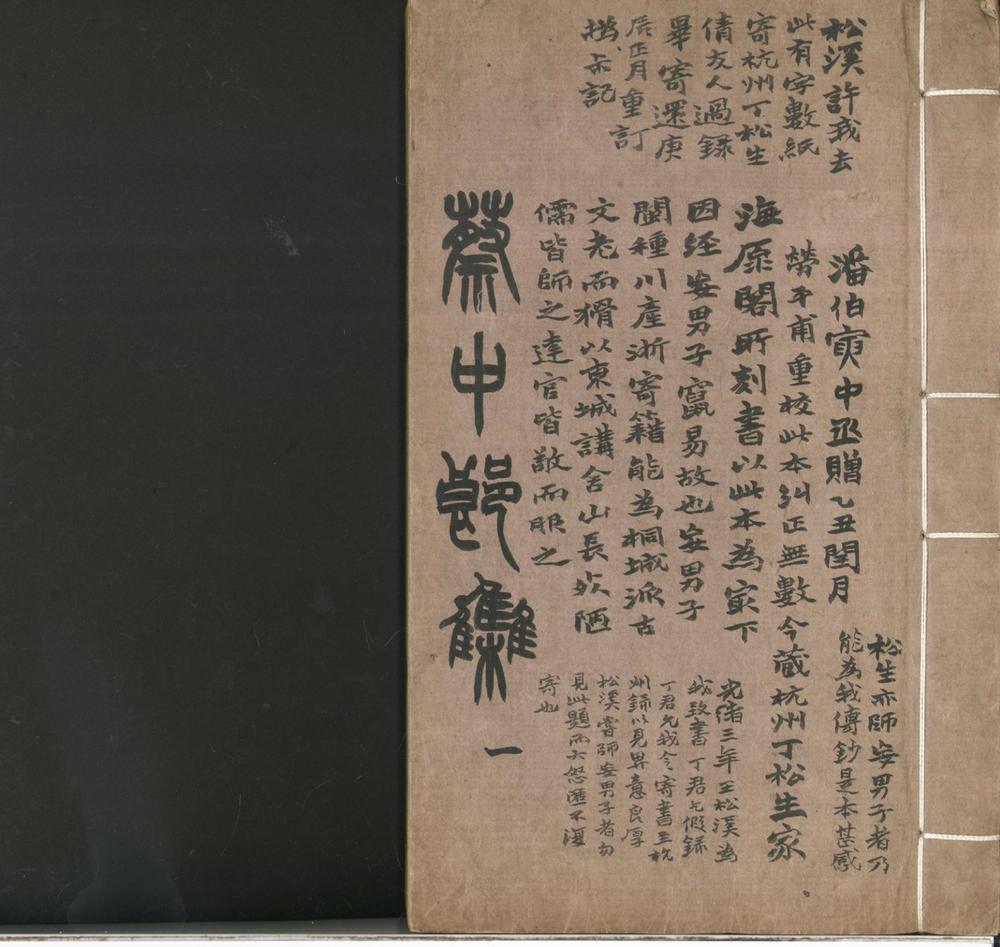 松溪許我去
此有字數紙
寄杭州丁松生
倩友人過錄
畢寄還庚
辰正月重訂
撝尗記
潘伯寅中丞贈乙丑閏月
松生亦師妄男子者乃
能為我傳鈔是本甚感
勞平甫重校此本糾正無數今藏杭州丁松生家
海原閣所刻書以此本為冣下
因經妄男子竄易故也妄男子
閩種川產浙寄籍能為桐城派古
文老而猾以東城講舍山長欺陋
儒皆師之達官皆敬而服之
光緒三年王松溪為
我致書丁君乞假錄
丁君允我令寄書至杭
州錄以見畀意良厚
松溪嘗師妄男子者勿
見此題而大怒匿不復
寄也
蔡中郎集 一